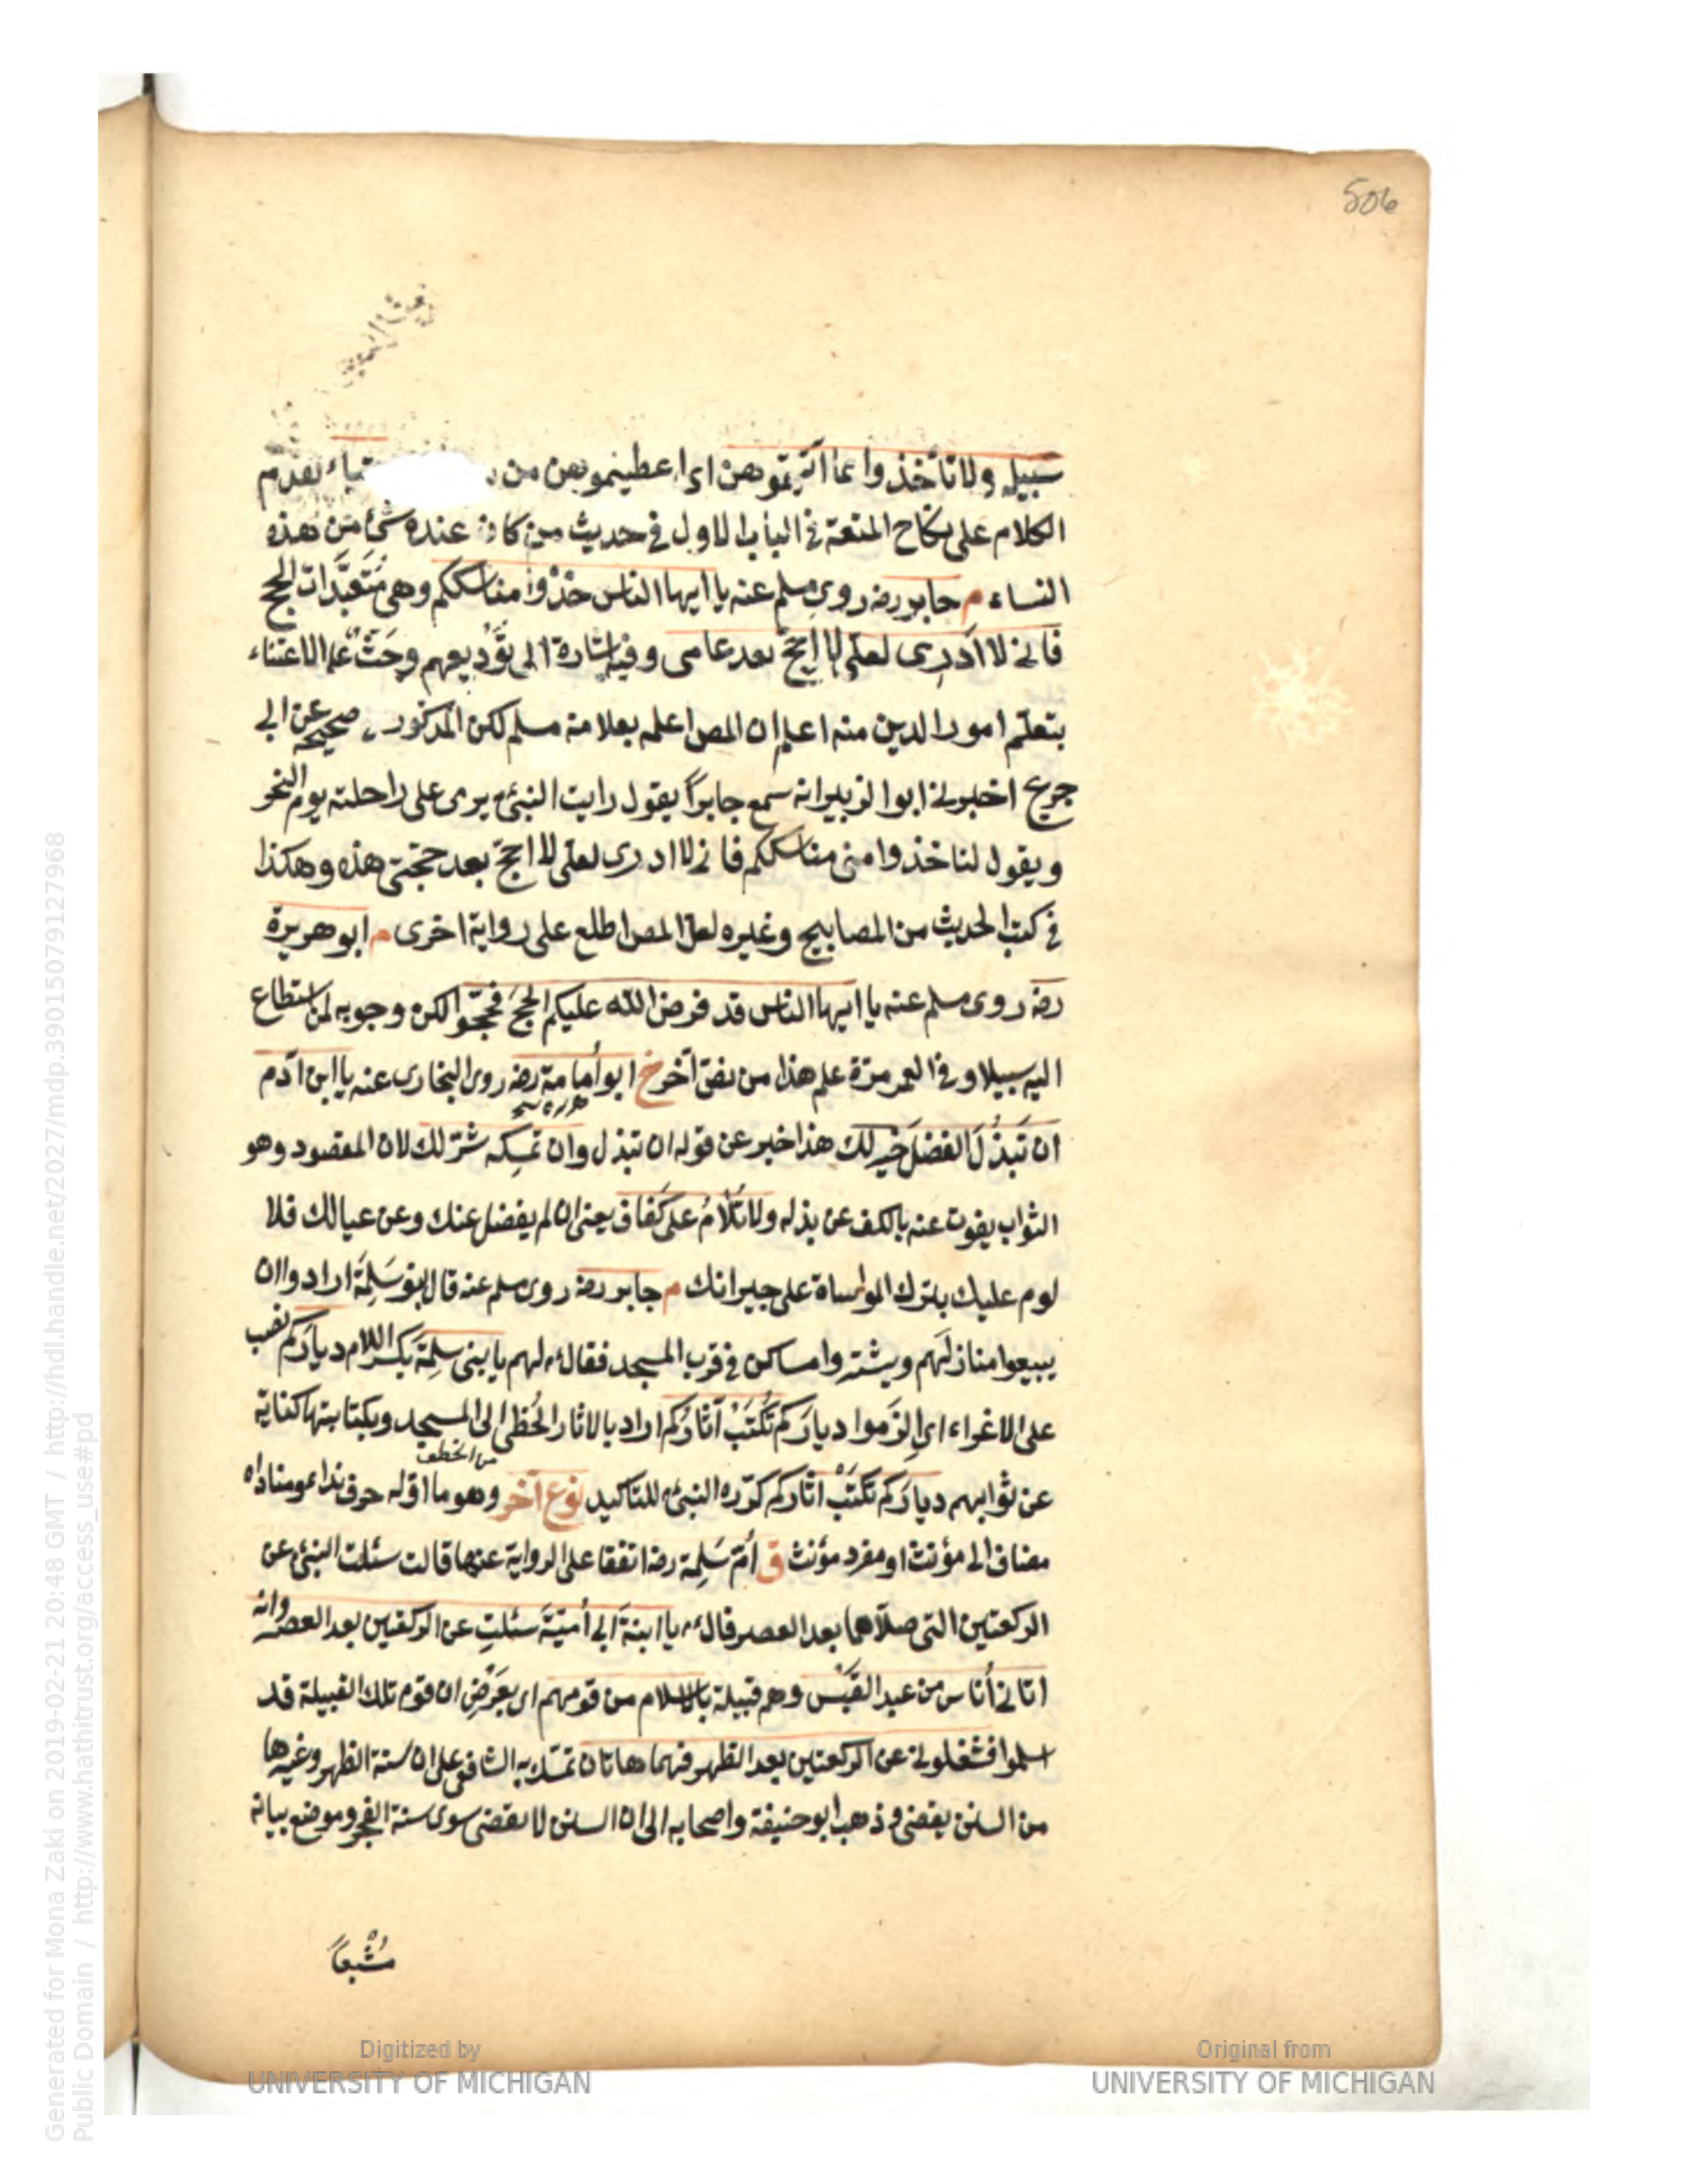 506
سبيله ولا تأخذوا مما آتيتموهن اى اعطيتموهن من شيئا، تقدم
الكلام على نكاح المتعة في الباب الاول في حديث من كان عنده شئ من هذه
النساء م جابر رضه روى مسلم عنه يا ايها الناس خذوا مناسككم وهى متعبَّدات الحج
فانى لا ادرى لعلى لا احج بعد عامى وفيه اشارة الى توديعهم وحَثٌّ على الاعتناء
بتعلّم امور الدين منه اعلم ان المص اعلمه بعلامة مسلم لكن المذكور صحيحه عن ابى
جريج اخبرنى ابو الزبير انه سمع جابراً يقول رايت النبىء يرمى على راحلته يوم النحر
ويقول لنا خذوا منى مناسككم فانى لا ادرى لعلى لا احج بعد حجتى هذه وهكذا
في كتب الحديث من المصابيح وغيره لعل المص اطلع على رواية اخرى م ابو هريرة
رضه روى مسلم عنه يا ايها الناس قد فرض الله عليكم الحجَ فحجّوا لكن وجوبه لمن استطاع
اليه سبيلا وفى العمر مرّة علم هذا من نصّ آخر خ ابو أمامة رضه روى البخارى عنه يا ابن آدم
ان تَبذُلَ الفضلَ خير لك هذا خبر عن قوله ان تبذل وان تمسِكه شرّ لك لان المقصود وهو
الثواب يفوت عنه بالكف عن بذله ولا تُلامُ على كَفاف يعنى ان لم يفضل عنك وعن عيالك فلا
لوم عليك بترك المواساة على جيرانك م جابر رضه روى مسلم عنه قال بنو سَلِمَة ارادوا ان
يبيعوا منازلَهم ويشتروا مساكن في قرب المسجد فقالء لهم يا بنى سلِمَة بكسر اللام ديارَكم نصب
على الاغراء اى اِلزَموا ديارَكم تُكتَبْ آثارُكم اراد بالاثار الخُطى الى المسجد وبكتابتها كناية
من الخطف
عن ثوابهم ديارَكم تكتَبْ اثاركم كرّره النبىء للتاكيد نوع آخر وهو ما اوّله حرف نداء ومناداه
مضاف الى مؤنث او مفرد مؤنث ق أمّ سَلِمة رضه اتفقا على الرواية عنها قالت سئلت النبىء عن
الركعتين التى صلاّهما بعد العصر فقالء يا ابنةَ ابى أميّةَ سئلتِ عن الركعتين بعد العصر وانه
اتانى أناس من عبد القَيْس وهم قبيلة بالاسلام من قومهم اى بعَرْضِ ان قوم تلك القبيلة قد
اسلموا فشغلونى عن الركعتين بعد الظهر فهما هاتان تمسّك به الشافعى على ان سنة الظهر وغيرها
من السنن يقضى وذهب ابو حنيفة واصحابه الى ان السنن لا تقضى سوى سنة الفجر وموضع بيانه
مُشْبعاً
Digitized by
UNIVERSITY OF MICHIGAN
Original from
UNIVERSITY OF MICHIGAN
Generated for Mona Zaki on 2019-02-21 20:48 GMT / http://hdl.handle.net/2027/mdp.39015079127968
Public Domain / http://www.hathitrust.org/access_use#pd